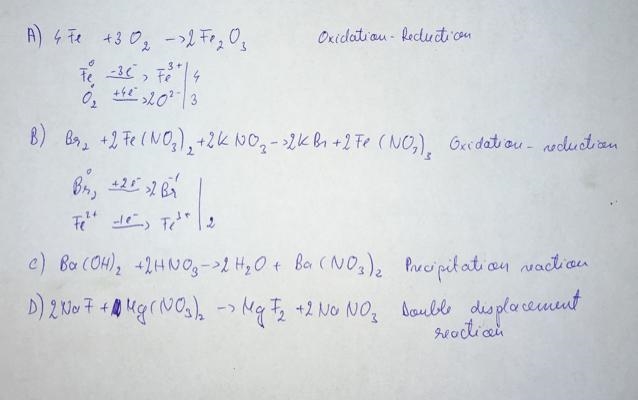 A) 4 Fe + 3 O₂ → 2 Fe₂O₃ Oxidation - Reduction
Fe⁰ -3e⁻→ Fe³⁺ | 4
O₂⁰ +4e⁻→ 2O²⁻ | 3
B) Br₂ + 2 Fe(NO₃)₂ + 2KNO₃ → 2KBr + 2Fe(NO₃)₃ Oxidation - reduction
Br₂⁰ +2e⁻→ 2Br⁻¹ |
Fe²⁺ -1e⁻→ Fe³⁺ | 2
C) Ba(OH)₂ + 2HNO₃ → 2H₂O + Ba(NO₃)₂ Precipitation reaction
D) 2NaF + Mg(NO₃)₂ → MgF₂ + 2NaNO₃ Double displacement
reaction